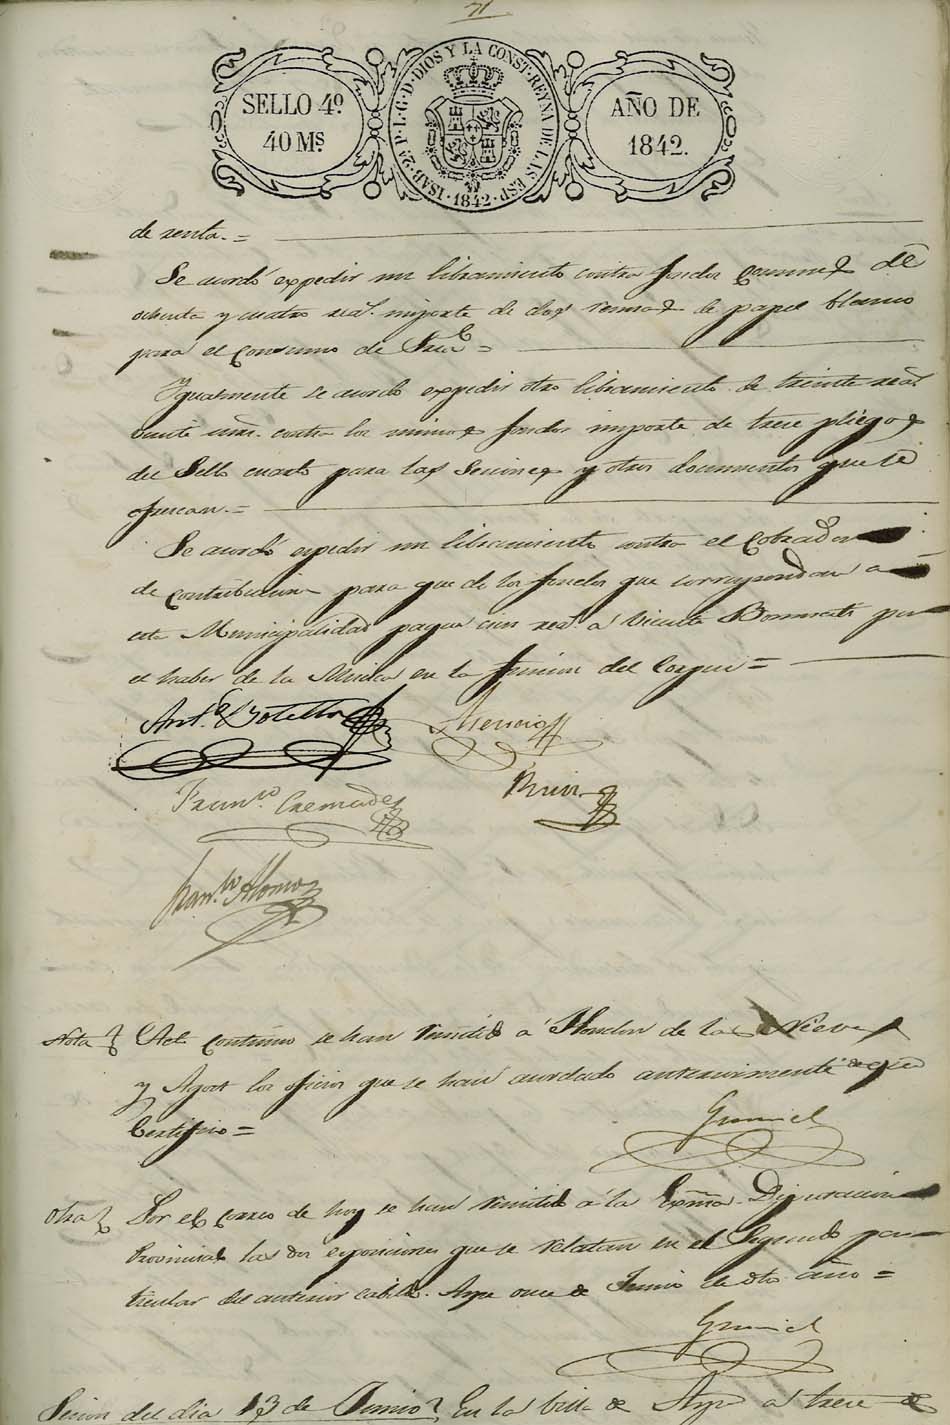 71
SELLO 4º
40 Mˢ
ISAB. 2ª P. L. G. D. DIOS Y LA CONST. REYNA DE LAS ESP.
1842
AÑO DE
1842.
de renta. =
Se acordó expedir un libramiento contra fondos Comunes de
ochenta y cuatro reaˢ. importe de dos remas de papel blanco
para el consumo de Sriaˢ =
Ygualmente se acordó expedir otro libramiento de treinta reaˢ
veinte mrs. contra los mismos fondos importe de trece pliegos
del Sello cuarto para las Seciones y otros documentos que se
ofrescan. =
Se acordó espedir un libramiento contra el Cobrador
de contribucion para que de los fondos que correspondan a
esta Municipalidad pague cien reaˢ. a Vicente Bonmati por
el haber de la Musica en la funcion del Corpus =
Antº Botella
Franᶜᵒ Cremades
Franᶜᵒ Alonso
Nota Act continuo se han remitido a Hondon de las Nieves
y Agost los oficios que se han acordado anteriormente de que
Certifico =
Otra Por el correo de hoy se han remitido a la Exma. Diputacion
Provincial las dos exposiciones que se relatan en el Segundo par-
ticular del anterior cabildo. Aspe once de Junio de dho año =
Secion del dia 13 de Junio En la villa de Aspe a trece de